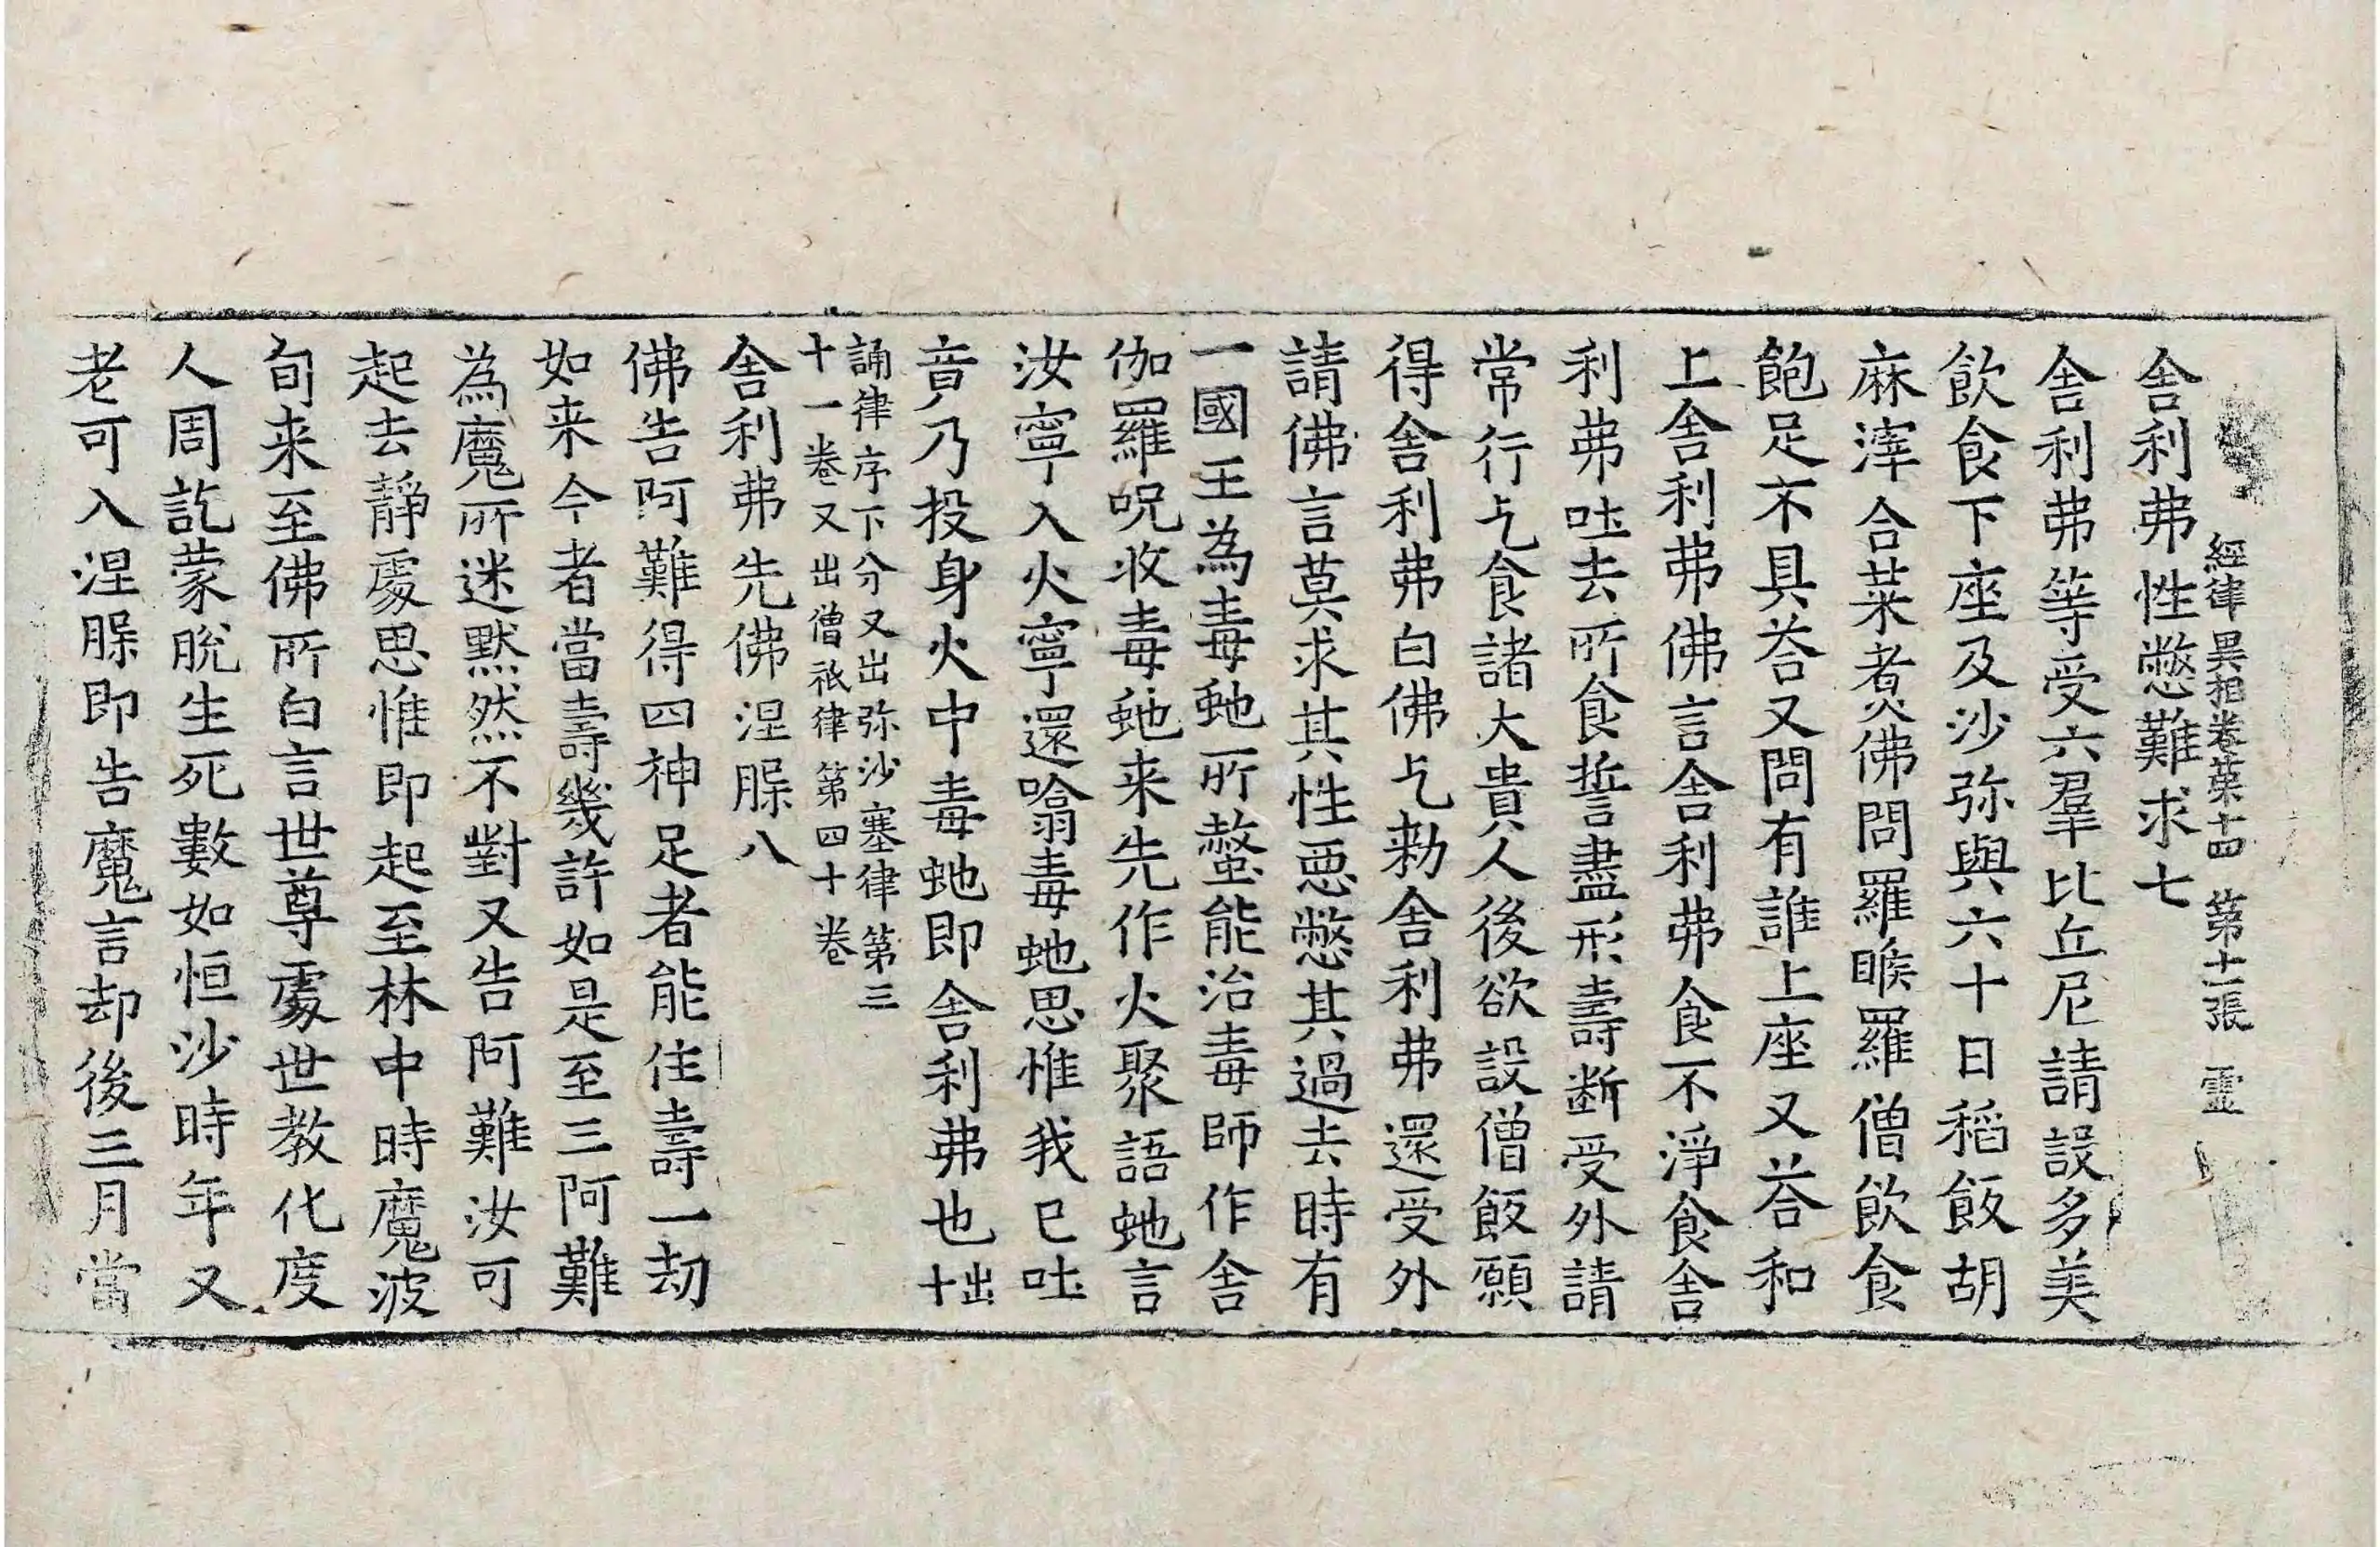 經律異相卷第十四 第十一張 靈
舎利弗性憋難求七
舎利弗等受六羣比丘尼請設多美
飲食下座及沙弥與六十日稻飯胡
麻滓合菜煑佛問羅睺羅僧飲食
飽足不具荅又問有誰上座又荅和
上舎利弗佛言舎利弗食不淨食舎
利弗吐去所食誓盡形壽断受外請
常行乞食諸大貴人後欲設僧飯願
得舎利弗白佛乞勑舎利弗還受外
請佛言莫求其性悪憋其過去時有
一國王為毒虵所螫能治毒師作舎
伽羅呪收毒虵来先作火聚語虵言
汝寧入火寧還噏毒虵思惟我已吐
音乃投身火中毒虵即舎利弗也出十
誦律序下分又出弥沙塞律第三
十一卷又出僧祇律第四十卷
舎利弗先佛涅槃八
佛告阿難得四神足者能住壽一劫
如来今者當壽幾許如是至三阿難
為魔所迷黙然不對又告阿難汝可
起去靜處思惟即起至林中時魔波
旬来至佛所白言世尊處世教化度
人周訖蒙脫生死數如恒沙時年又
老可入涅槃即告魔言却後三月當